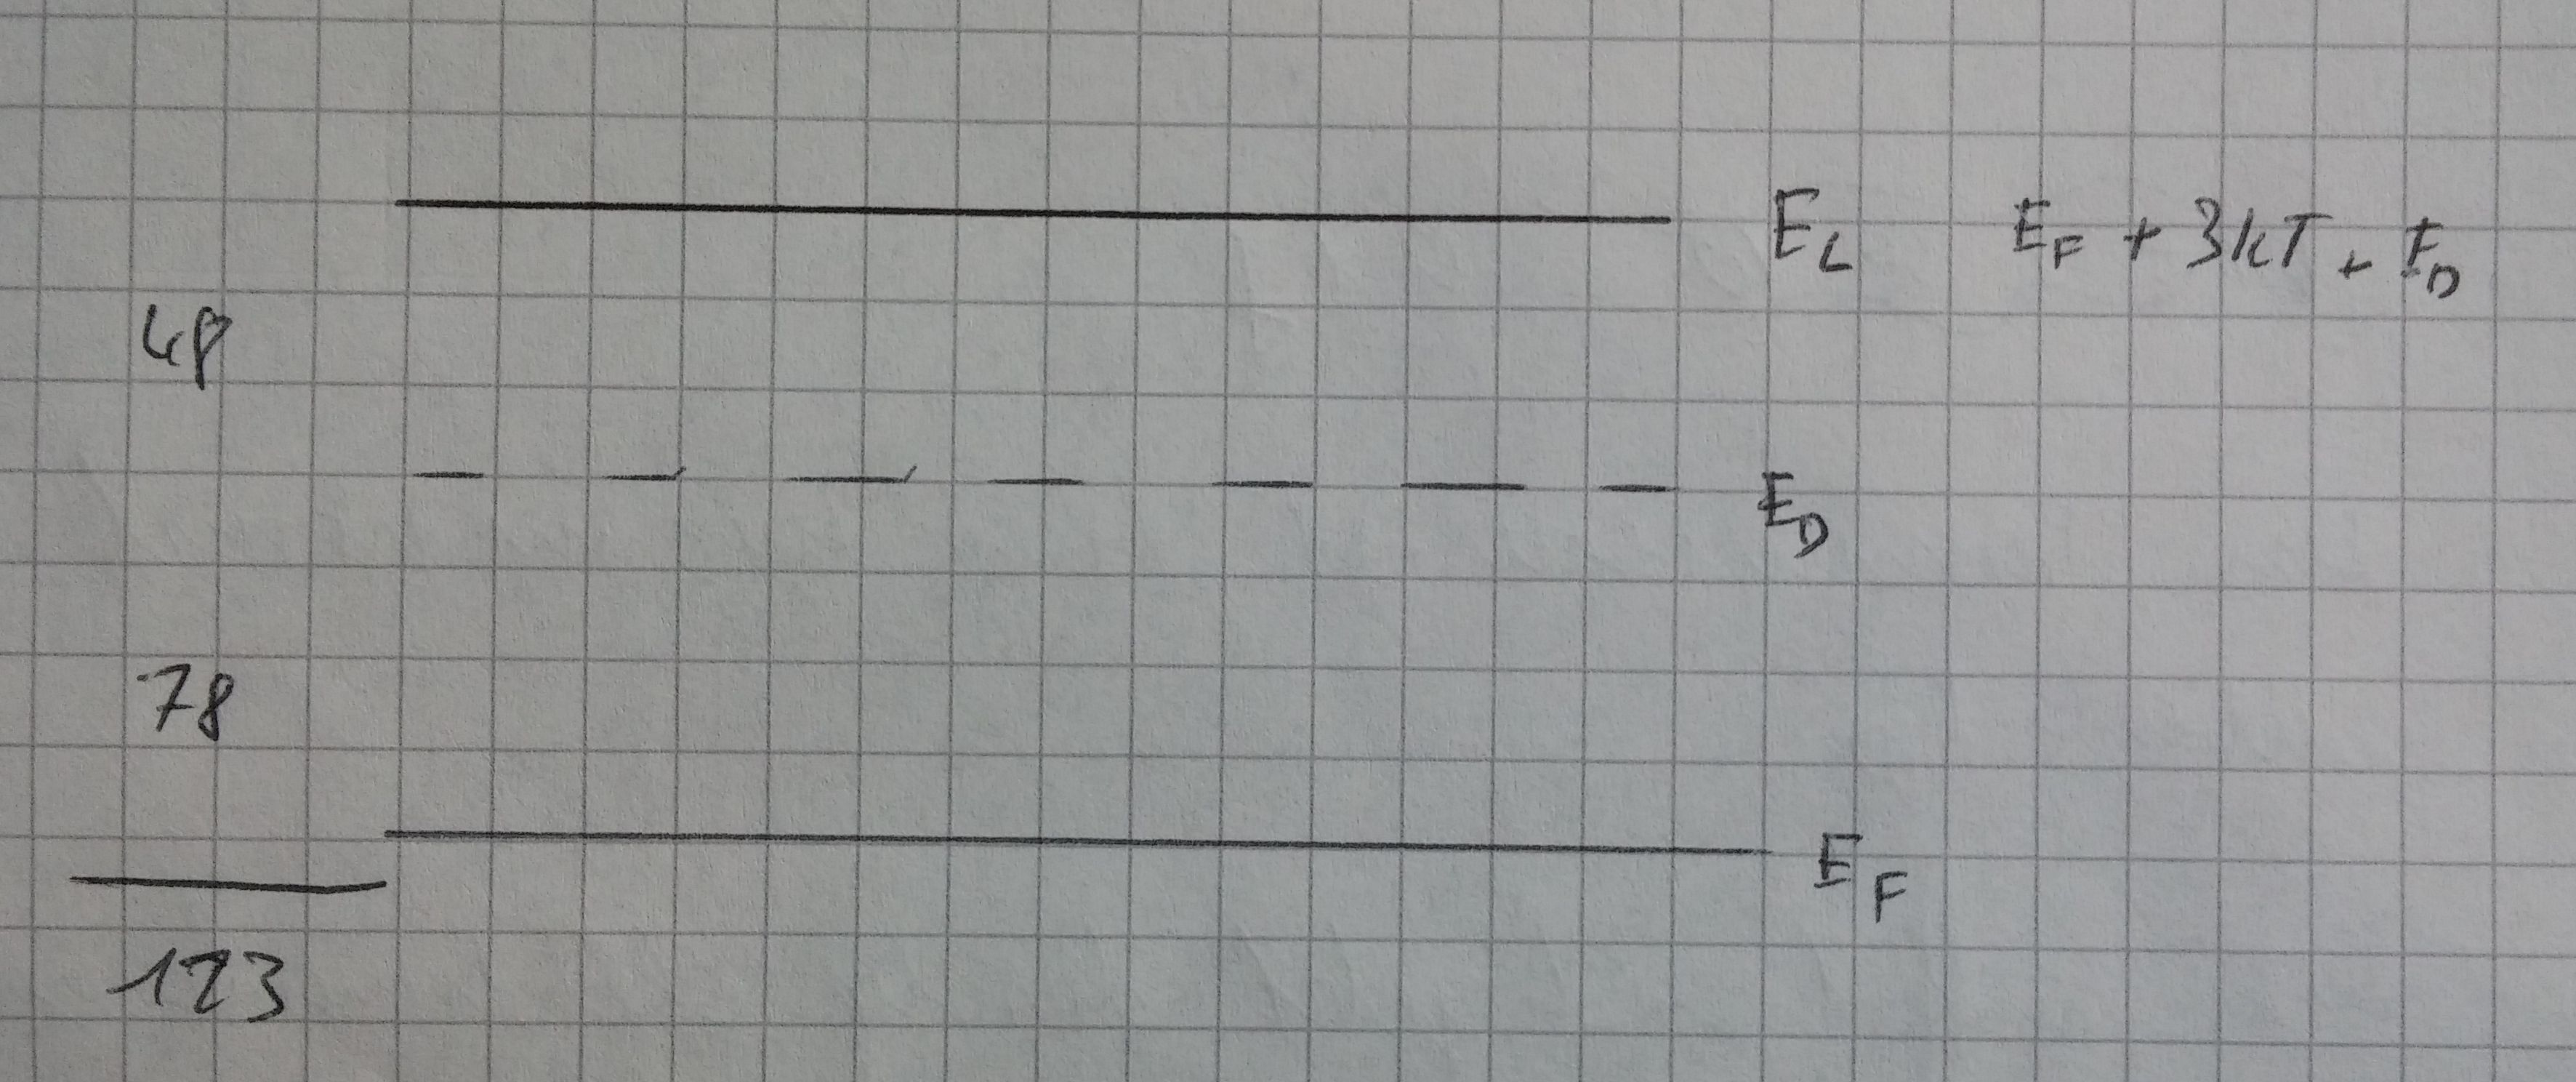 E_L E_F + 3kT + E_D
48
E_D
78
E_F
123